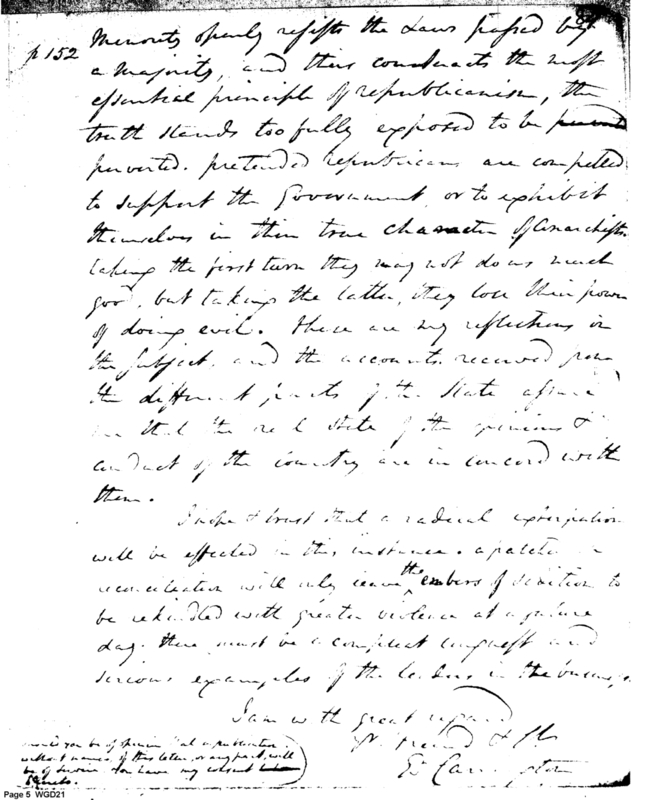 p 152 Minority openly resists the Laws passed by
a Majority, and thus counteracts the most
essential principle of republicanism, the
truth stands too fully exposed to be
perverted. pretended republicans are compelled
to support the Government, or to exhibit
themselves in their true character of Anarchists.
taking the first turn they may not do us much
good, but taking the latter, they lose their power
of doing evil. these are my reflections on
the subject, and the accounts received from
the different parts of the State assure
me that the real State of the opinions &
conduct of the country are in concord with
them.
I hope & trust that a radical extirpation
will be effected in this instance. a
reconciliation will only leave the embers of sedition to
be rekindled with greater violence at a future
day. there must be a compleat conquest and
serious examples of the leaders in the business.
I am with great regard
Yr. friend & St
Ed Carrington
should you be of opinion that a publication
without names, of this letter, or any part, will
be of service you have my consent
Page 5 WGD21